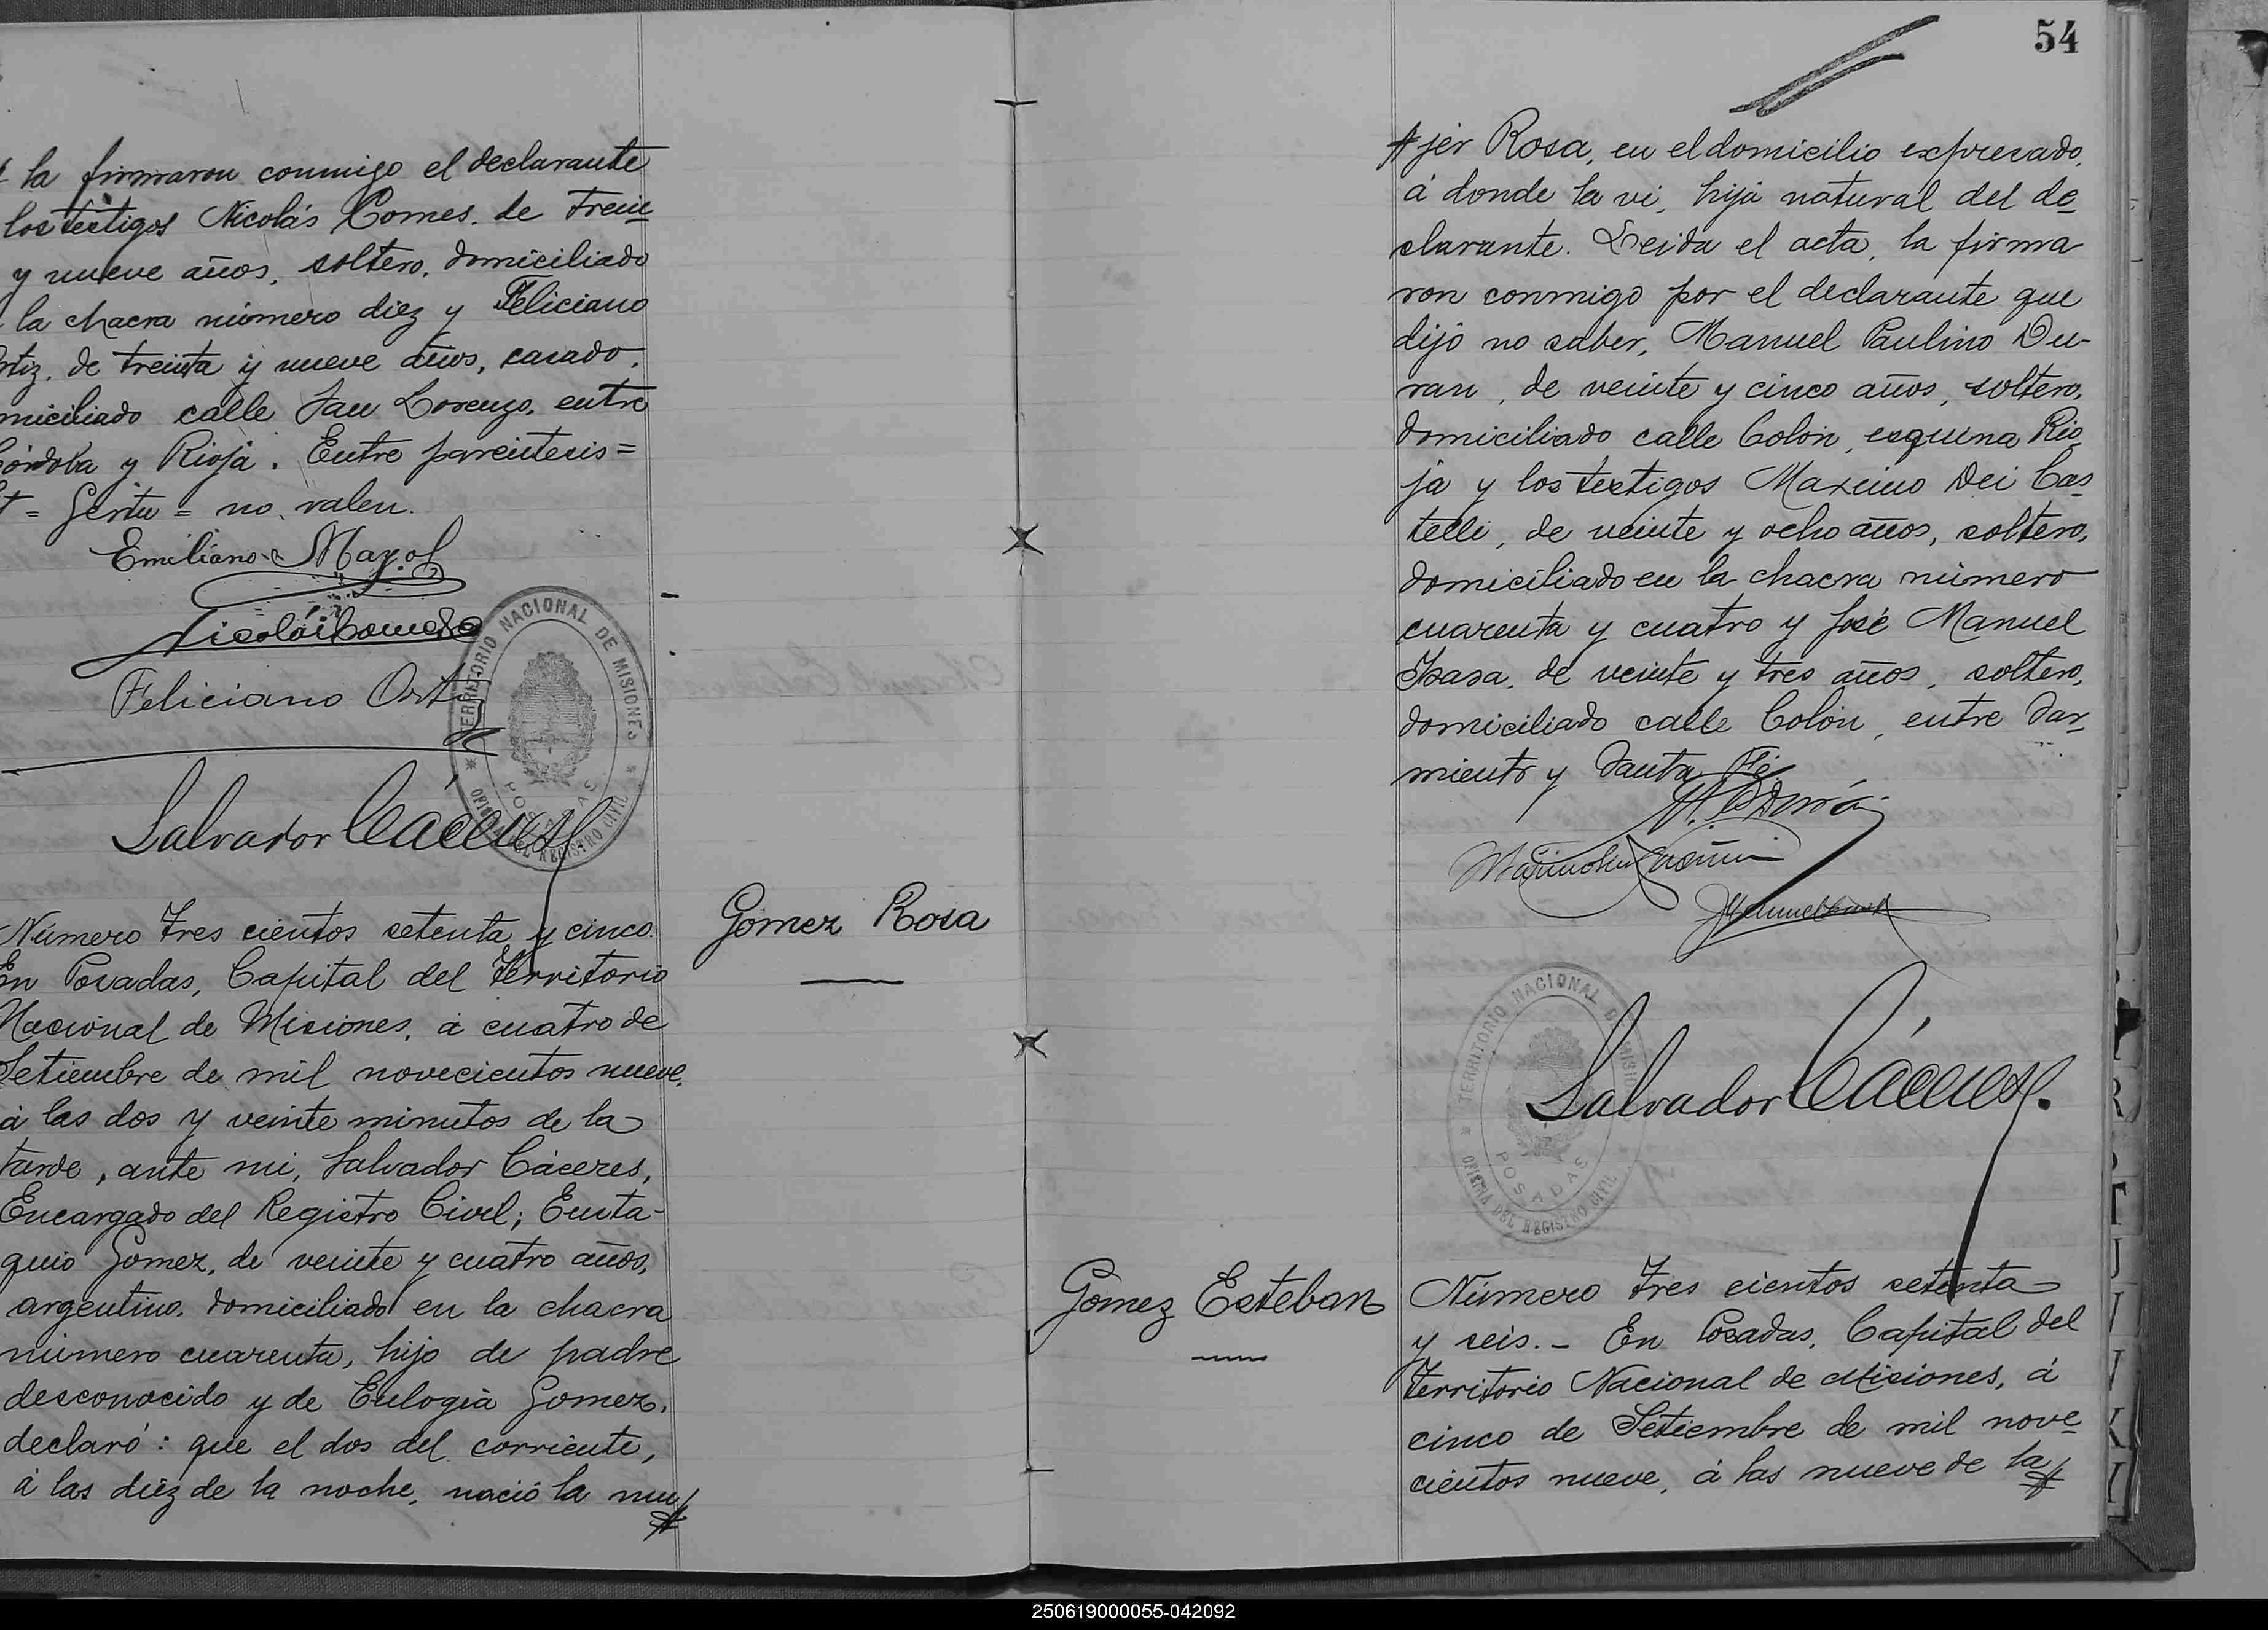 la firmaron conmigo el declarante
los testigos Nicolás Comes, de trein
y nueve años, soltero, domiciliado
la chacra número diez y Feliciano
rtiz, de treinta y nueve años, casado,
miciliado calle San Lorenzo, entre
Córdoba y Rioja. Entre parentesis=
= no valen.
Emiliano Mayol
Nicolás Comes
Feliciano Ortiz
TERRITORIO NACIONAL DE MISIONES
POSADAS
OFICINA DEL REGISTRO CIVIL
Salvador Cáceres
Número tres cientos setenta y cinco.
En Posadas, Capital del Territorio
Nacional de Misiones, á cuatro de
Setiembre de mil novecientos nueve,
á las dos y veinte minutos de la
tarde, ante mi, Salvador Cáceres,
Encargado del Registro Civil; Eusta-
quio Gomez, de veinte y cuatro años,
argentino, domiciliado en la chacra
número cuarenta, hijo de padre
desconocido y de Eulogia Gomez,
declaró: que el dos del corriente,
á las diez de la noche, nació la mu
Gómez Rosa
54
jer Rosa, en el domicilio expresado,
á donde la vi, hija natural del de
clarante. Leida el acta, la firma
ron conmigo por el declarante que
dijo no saber, Manuel Paulino Du-
ran, de veinte y cinco años, soltero,
domiciliado calle Colón, esquina Rio
ja y los testigos Maximo Dei Cas
telli, de veinte y ocho años, soltero,
domiciliado en la chacra número
cuarenta y cuatro y José Manuel
Isasa, de veinte y tres años, soltero,
domiciliado calle Colón, entre Sar
miento y Santa Fé.
TERRITORIO NACIONAL DE MISIONES
POSADAS
OFICINA DEL REGISTRO CIVIL
Salvador Cáceres.
Gómez Esteban
Número tres cientos setenta
y seis.- En Posadas, Capital del
Territorio Nacional de Misiones, á
cinco de Setiembre de mil nove
cientos nueve, á las nueve de la
R
T
J
K
250619000055-042092